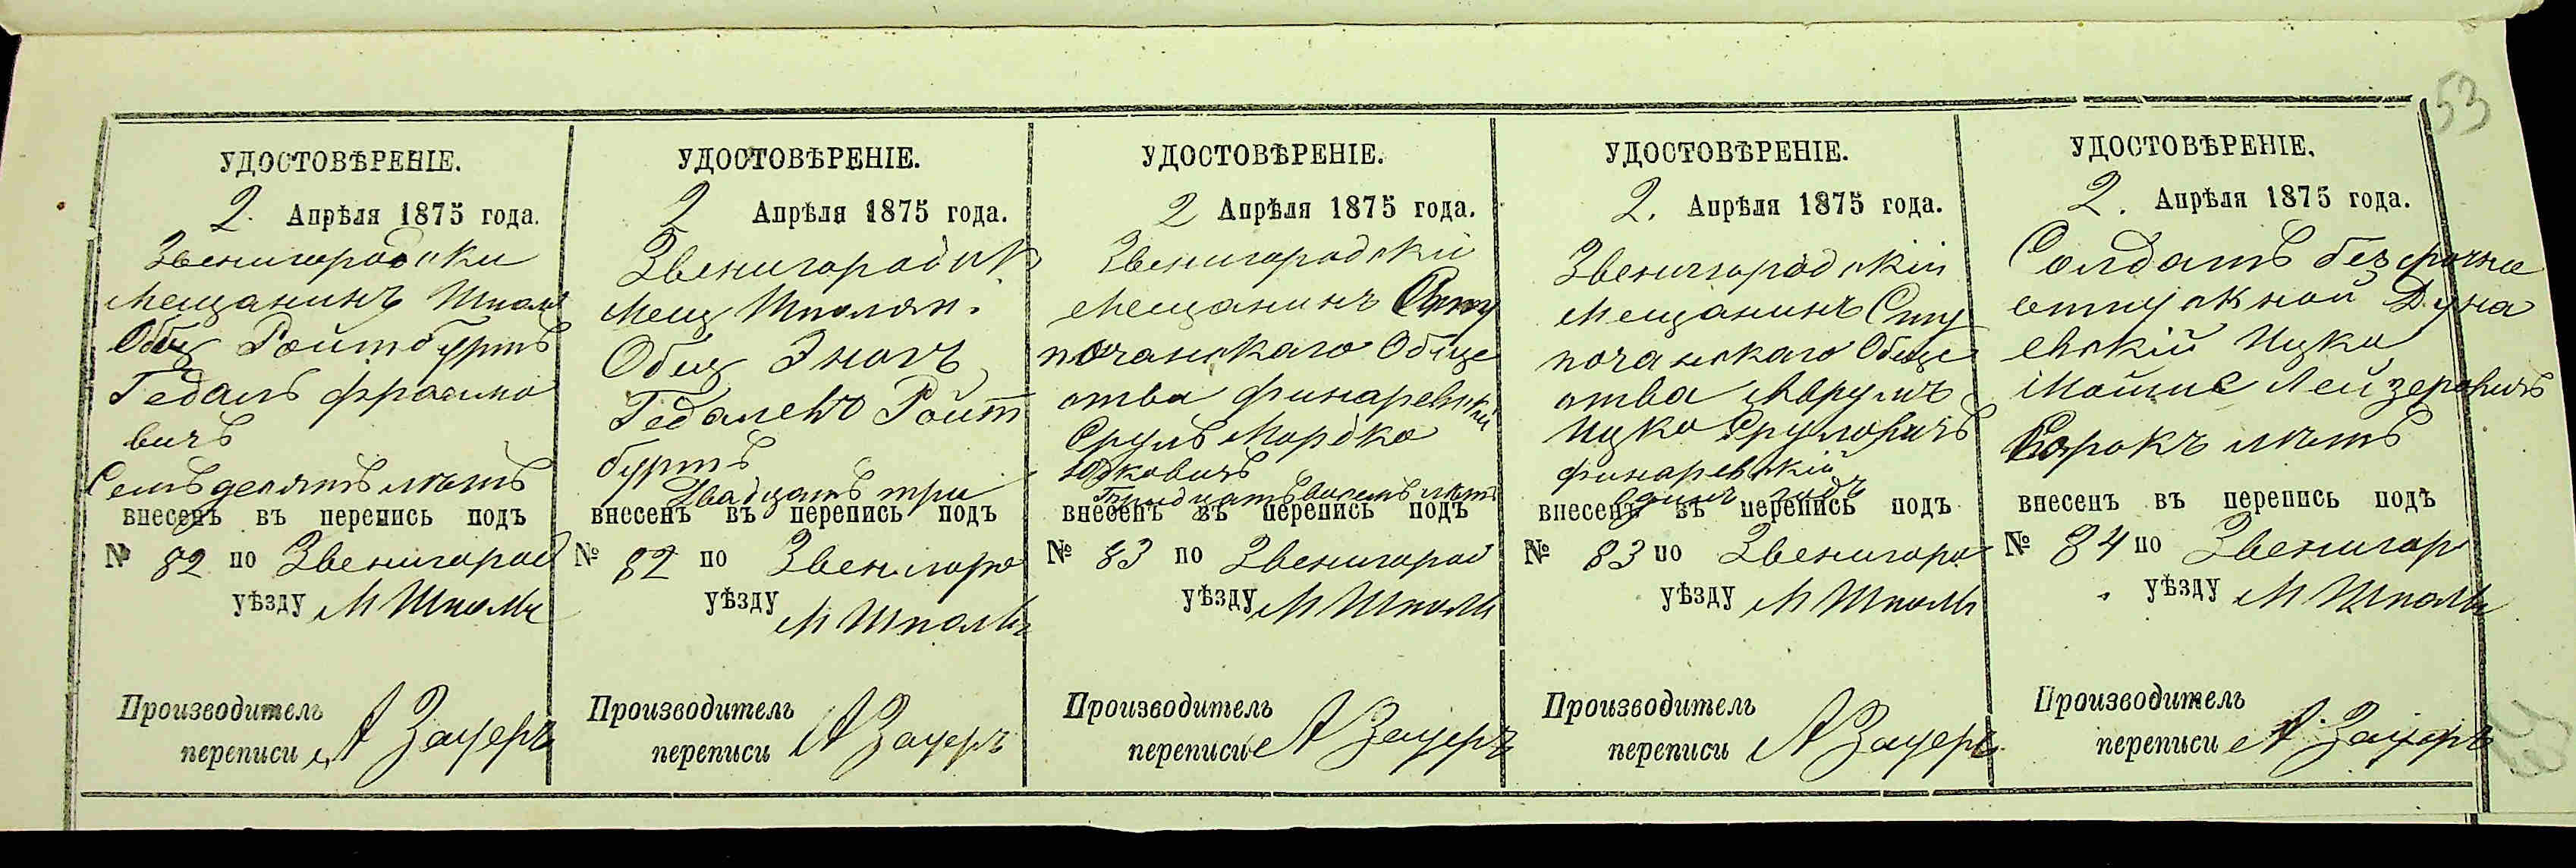 53
УДОСТОВѢРЕНІЕ.
2. Апрѣля 1875 года.
Звенигородски
Мещанинъ Шпол
Общ Ройтбуртъ
Гедаль Фроимо
вичъ
Семьдесятъ лѣтъ
внесенъ въ перепись подъ
№ 82 по Звенигород
уѣзду М Шполы
Производитель
переписи А Зауеръ
УДОСТОВѢРЕНІЕ.
2 Апрѣля 1875 года.
Звенигородск
Мещ Шполян.
Общ Энохъ
Гедалевъ Ройт
буртъ
Двадцать три
внесенъ въ перепись подъ
№ 82 по Звенигоро
уѣзду М Шполы
Производитель
переписи А Зауеръ
УДОСТОВѢРЕНІЕ.
2 Апрѣля 1875 года.
Звенигородскій
Мещанинъ Сту
почанскаго Обще
ства Финаревскій
Сруль Мордко
Юдковичъ
Тридцать восемь лѣтъ
внесенъ въ перепись подъ
№ 83 по Звенигород
уѣзду М Шполы
Производитель
переписи А Зауеръ
УДОСТОВѢРЕНІЕ.
2. Апрѣля 1875 года.
Звенигородскій
Мещанинъ Сту
почанскаго Обще
ства Аврумъ
Ицко Сруловичъ
Финаревскій
Одинъ годъ
внесенъ въ перепись подъ
№ 83 по Звенигоро
уѣзду М Шполы
Производитель
переписи А Зауеръ
УДОСТОВѢРЕНІЕ.
2. Апрѣля 1875 года.
Солдатъ безсрочно
отпускной Дуна
евскій Ицко
Мошко Лейзеровичъ
Сорокъ лѣтъ
внесенъ въ перепись подъ
№ 84 по Звенигор
уѣзду М Шполы
Производитель
переписи А. Зауеръ